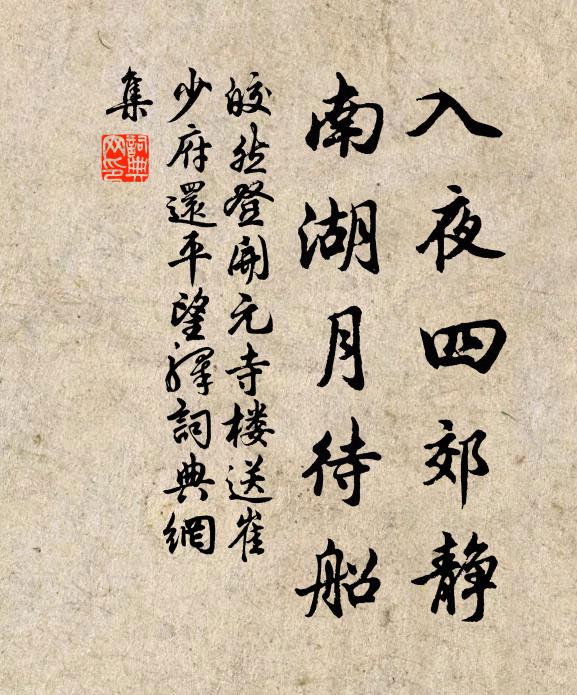 入夜四郊静
南湖月待船
皎然登開元寺楼送崔
少府還平望驛詞典網
集
詞典網印